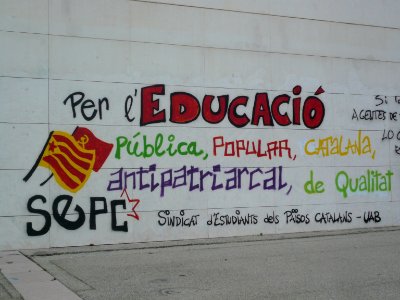 Per l'EDUCACIÓ
Pública, POPULAR, CATALANA,
antipatriarcal, de Qualitat
SEPC
SINDICAT d'ESTUDIANTS dels PAÏSOS CATALANS - UAB
Si
AGENTES DE
LO